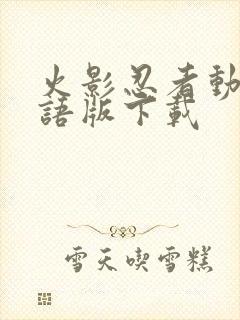 火影忍者動
語版下載
雪天喫雪糕